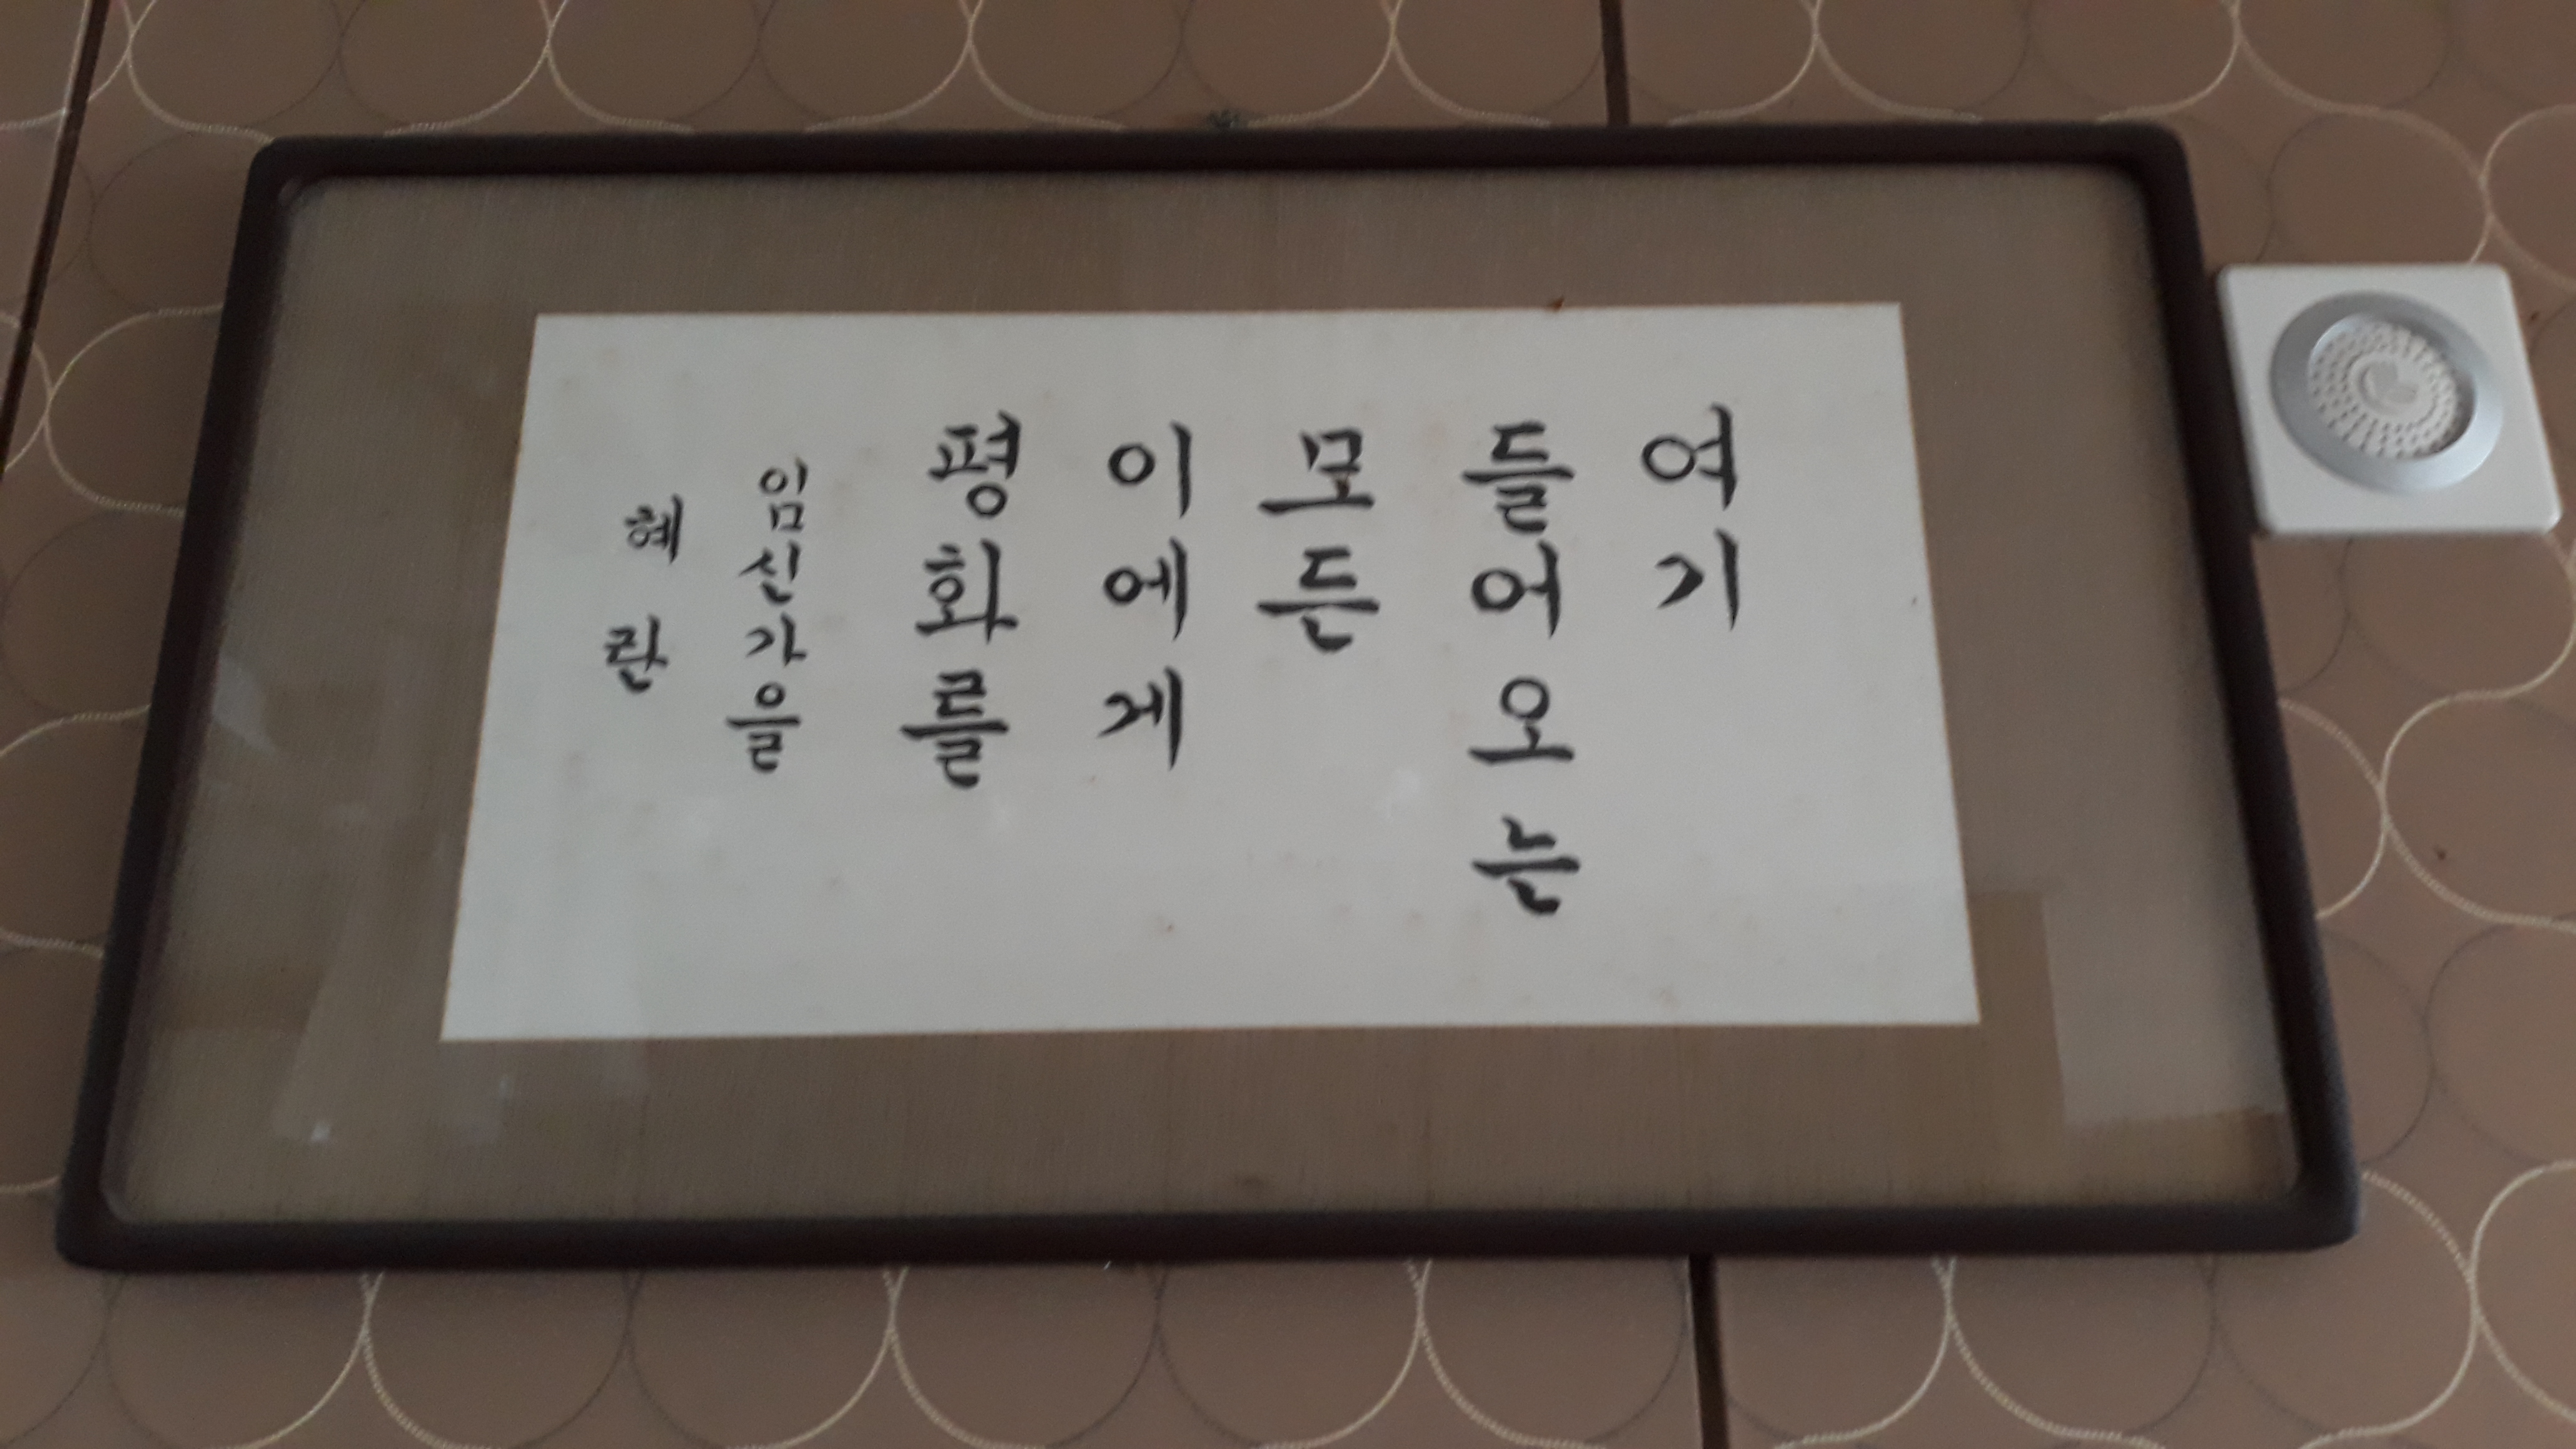 여기
들어오는
모든
이에게
평화를
임신가을
혜란